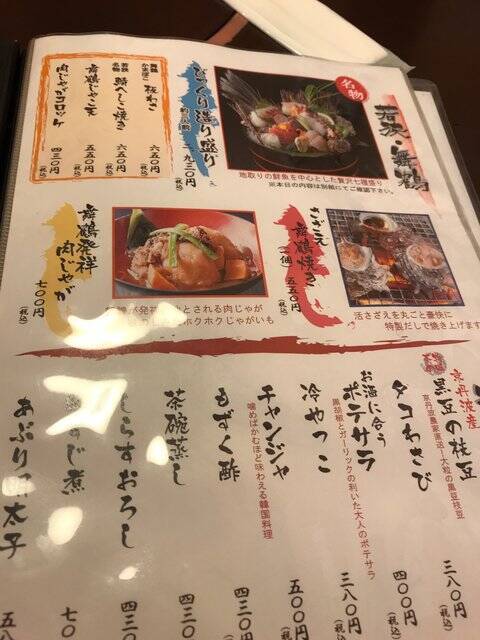 名物
若狭・舞鶴
地取りの鮮魚を中心とした贅沢七種盛り
※本日の内容は別紙にてご確認下さい。
びっくり造り盛り
二、九三〇円(税込)
舞鶴かまぼこ 板わさ 六五〇円(税込)
若狭名物 鯖へしこ焼き 六五〇円(税込)
舞鶴じゃこ天 五五〇円(税込)
肉じゃがコロッケ 四三〇円(税込)
さざえ
舞鶴焼き
(一個) 五五〇円(税込)
活さざえを丸ごと豪快に
特製だしで焼き上げます
舞鶴発祥
肉じゃが
七〇〇円(税込)
が発祥 とされる肉じゃが
ホクホクじゃがいも
京丹波産
黒豆の枝豆
京丹波農家直送!大粒の黒豆枝豆
タコわさび
お酒に合う
ポテサラ
黒胡椒とガーリックの利いた大人のポテサラ
冷やっこ
チャンジャ
噛めばかむほど味わえる韓国料理
もずく酢
茶碗蒸し
しらすおろし
すじ煮
あぶり明太子
三八〇円(税込)
四〇〇円(税込)
三八〇円(税込)
五〇〇円(税込)
四三〇円
四三〇
四三〇
七〇
五八